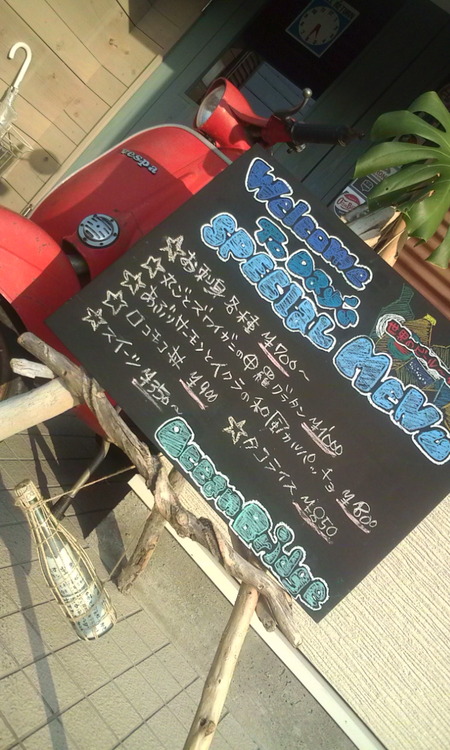 vespa
Welcome
To Day's
SPECIAL MENU
世界のビール
☆お刺身 各種 ¥700〜
☆丸ごとズワイガニの甲羅グラタン ¥1,000
☆あぶりサーモンとイクラの和風カルパッチョ ¥800
☆ロコモコ丼 ¥900
☆タコライス ¥850
☆スイーツ ¥350〜
Ocean Bridge